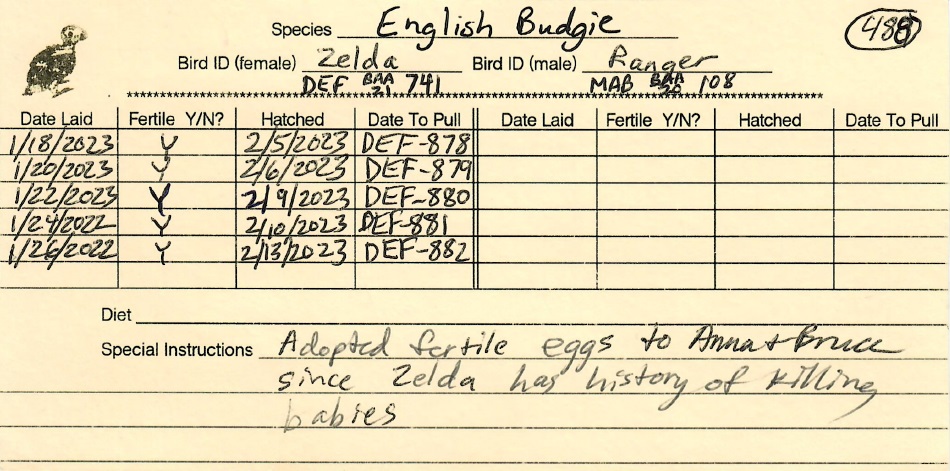 Species English Budgie 488
Bird ID (female) Zelda Bird ID (male) Ranger
DEF BAA 21 741 MAB BAA 20 108
Date Laid Fertile Y/N? Hatched Date To Pull Date Laid Fertile Y/N? Hatched Date To Pull
1/18/2023 Y 2/5/2023 DEF-878
1/20/2023 Y 2/6/2023 DEF-879
1/22/2023 Y 2/9/2023 DEF-880
1/24/2022 Y 2/10/2023 DEF-881
1/26/2022 Y 2/13/2023 DEF-882
Diet
Special Instructions Adopted fertile eggs to Anna + Bruce
since Zelda has history of killing
babies